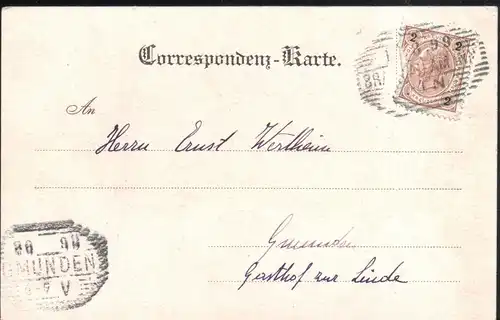 Correspondenz-Karte.
2 2
2
An
Herrn Ernst Wertheim
Gmunden
GMUNDEN
Gasthof zur Linde